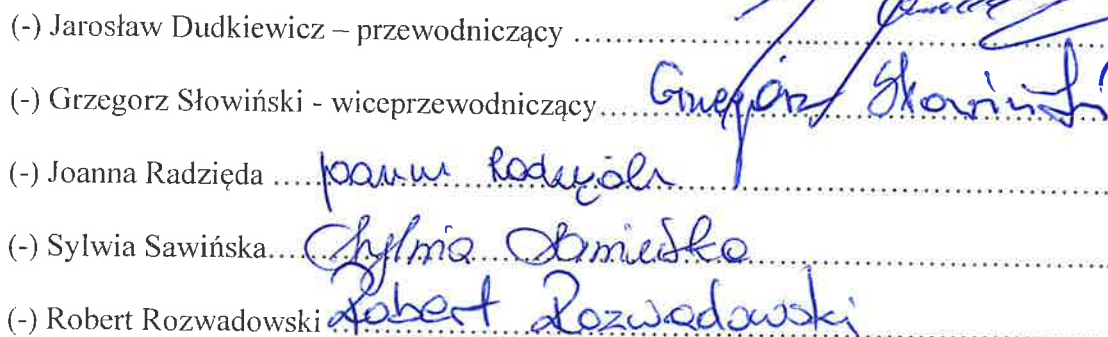 (-) Jarosław Dudkiewicz – przewodniczący ........................
(-) Grzegorz Słowiński - wiceprzewodniczący..... Grzegorz Słowiński
(-) Joanna Radzięda ..... Joanna Radzięda
(-) Sylwia Sawińska..... Sylwia Sawińska
(-) Robert Rozwadowski Robert Rozwadowski